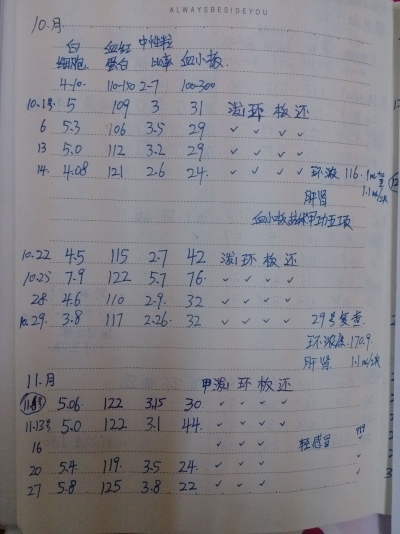 ALWAYSBESIDEYOU
10.月
白 血红 中性粒
细胞 蛋白 比率 血小板.
4-10. 110-150 2-7 100-300
10.1号 5 109 3 31 泼 环 板 还
6 5.3 106 3.5 29 ✓ ✓ ✓ ✓
13 5.0 112 3.2 29 ✓ ✓ ✓ ✓
14. 4.08 121 2.6 24. ✓ ✓ ✓ ✓ 环浓 116.
肝肾 1.1ml/次
血小板抗体 甲功五项
10.22 4.5 115 2.7 42 泼 环 板 还
10.25 7.9 122 5.7 76 ✓ ✓ ✓ ✓
28 4.6 110 2.9. 32 ✓ ✓ ✓ ✓
10.29. 3.8 117 2.26. 32 ✓ ✓ ✓ ✓ 29号复查
环浓度 170.9.
肝肾 1.1ml/次
11.月 甲泼 环 板 还
11.8号 5.06. 122 3.15 30 ✓ ✓ ✓ ✓
11.13号 5.0 122 3.1 44 ✓ ✓ ✓ ✓
16 ✓ ✓ ✓ 轻感冒 !!!
20 5.4. 119. 3.5 24. ✓ ✓ ✓
27 5.8 125 3.8 22 ✓ ✓ ✓